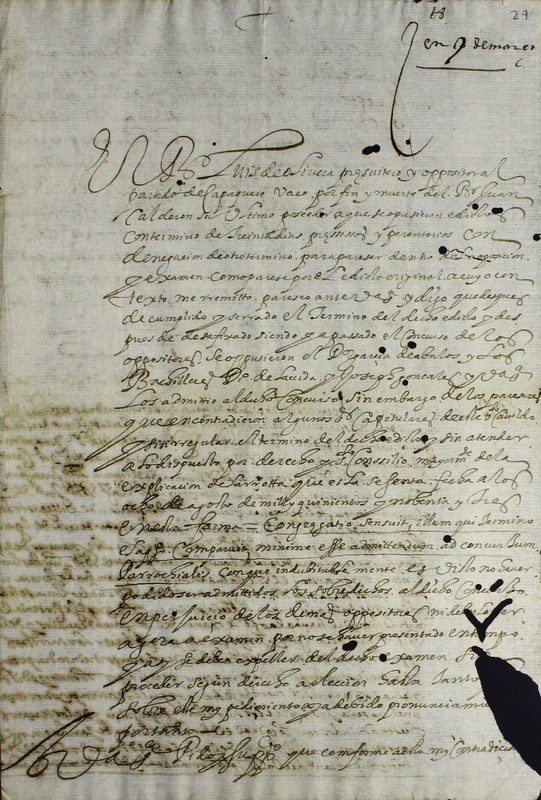 18 29
en 9 de março
El Br Luis de Rivera presvitero y oppositor al
partido de Capaguero Vaco por fin y muerte del Br Juan
Calderon su Ultimo posedor a que se opusieron edictos
Con termino de treinta dias, pressisos y perentorios con
denegacion de otro termino, para pareser dentro de
y examen, como parese por el edicto original, a cuyo con
texto, me rremitto, paresco ante y digo que despues
de cumplido y serrado el Termino del dicho edicto y des
pues de desafixado siendo ya passado el Concurso de los
oppositores, Se oppusieron el Dor garcia de abalos, y los
Brachilleres Do de la cida, y Joseph gonsales
Los admitio al dicho Concurso, sin embargo de los pareseres
que en contradicion algunos Capitulares de este Cavildo
el termino del dicho edicto, y sin atender
a lo dispuesto por derecho y Conssilio, mayormte de la
explicacion de que esta. Se senta. fecha a los
ocho de agosto de mill y quinientos y nobenta y tres
en esta forma = Congregatio Sensuit, illum qui termino
elapsi Comparuit, minime esse admittendum, ad concursum
Parrochialis, con que indubitable mente, es visto no haver
podido ser admitidos, los sobredichos, al dicho Concurso
en perjuicio de los demas oppositores ni deben ser
agora a examen por no se haver presentado en tiempo
y assi se deben expeller del dicho examen
proceder segun derecho a eleccion hasta tanto
sobre este mi pedimiento aya debido pronunciami
por tanto
A Pido y Suppco que conforme a esta mi Contradicio